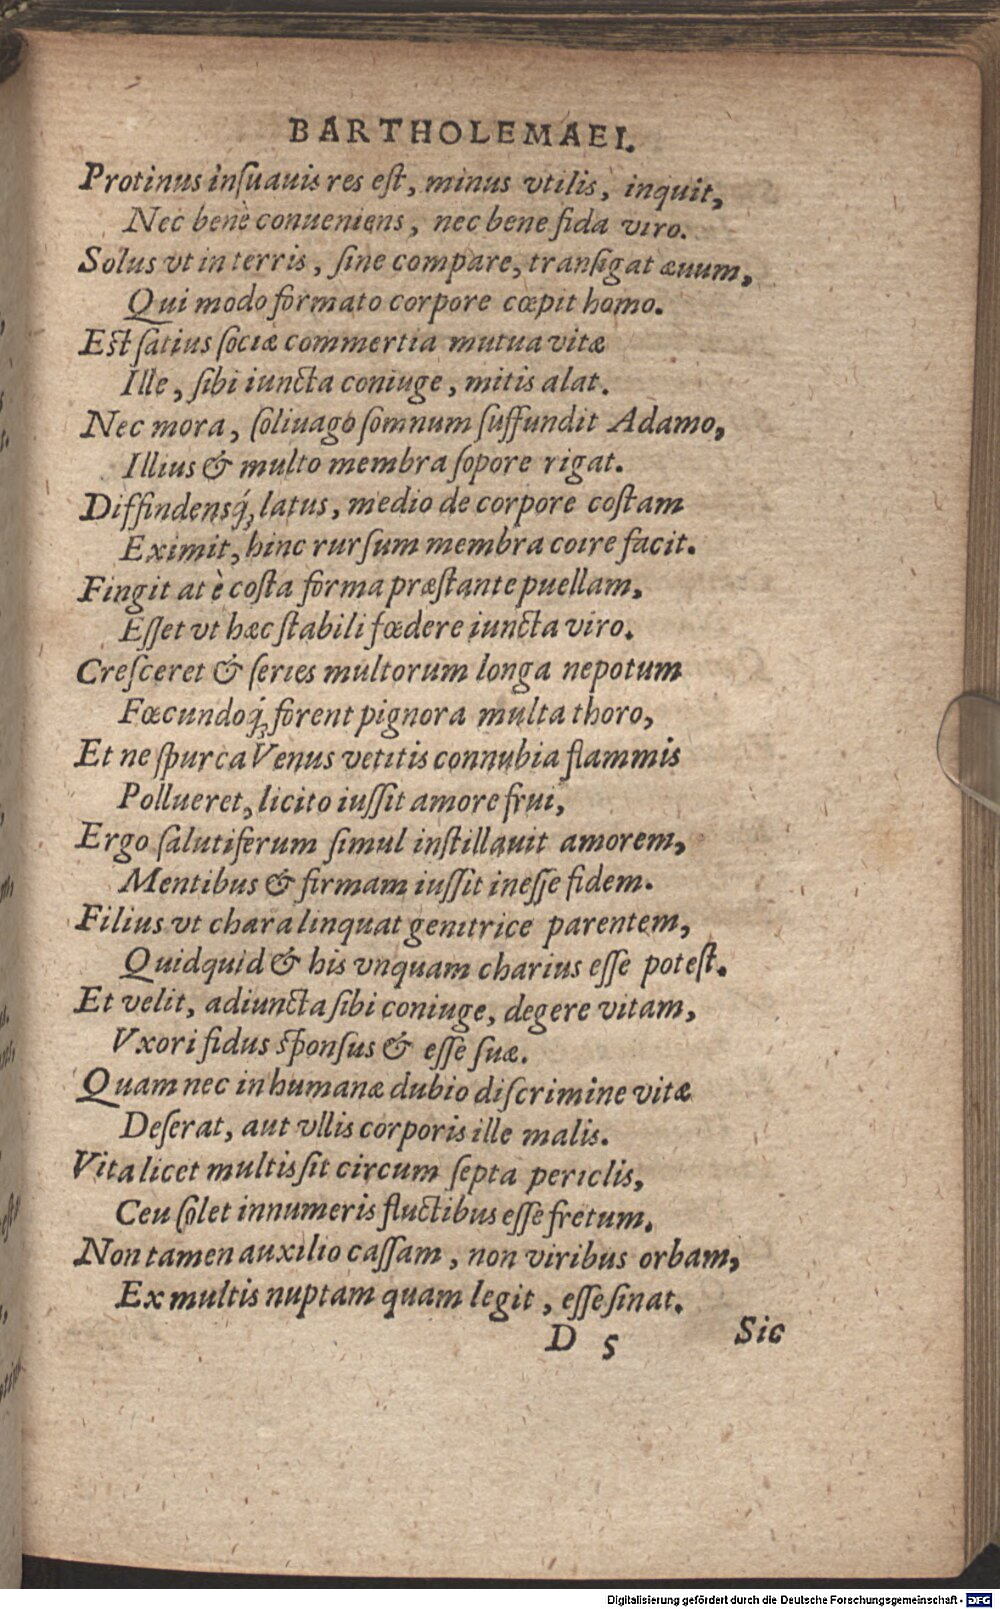 BARTHOLEMAEI.
Protinus insuauis res est, minus vtilis, inquit,
Nec benè conueniens, nec bene fida viro.
Solus vt in terris, sine compare, transigat æuum,
Qui modo formato corpore cœpit homo.
Est satius sociæ commertia mutua vitæ
Ille, sibi iuncta coniuge, mitis alat.
Nec mora, soliuago somnum suffundit Adamo,
Illius & multo membra sopore rigat.
Diffindensq́; latus, medio de corpore costam
Eximit, hinc rursum membra coire facit.
Fingit at è costa forma præstante puellam,
Esset vt hæc stabili fœdere iuncta viro.
Cresceret & series multorum longa nepotum
Fœcundoq́; forent pignora multa thoro,
Et ne spurca Venus vetitis connubia flammis
Pollueret, licito iussit amore frui,
Ergo salutiferum simul instillauit amorem,
Mentibus & firmam iussit inesse fidem.
Filius vt chara linquat genitrice parentem,
Quidquid & his vnquam charius esse potest.
Et velit, adiuncta sibi coniuge, degere vitam,
Vxori fidus sponsus & esse suæ.
Quam nec in humanæ dubio discrimine vitæ
Deserat, aut vllis corporis ille malis.
Vita licet multis sit circum septa periclis,
Ceu solet innumeris fluctibus esse fretum.
Non tamen auxilio cassam, non viribus orbam,
Ex multis nuptam quam legit, esse sinat.
D 5 Sic
Digitalisierung gefördert durch die Deutsche Forschungsgemeinschaft - DFG